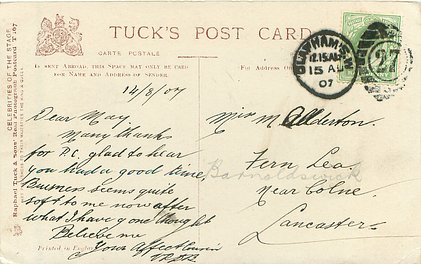 TUCK'S POST CARD
CARTE POSTALE
IF SENT ABROAD, THIS SPACE MAY ONLY BE USED
FOR NAME AND ADDRESS OF SENDER.
For Address On
12.15 AM
15 AU
07
27
CELEBRITIES OF THE STAGE
Raphael Tuck & Sons' Real Photograph Postcard
14/8/07
Dear May,
Many thanks
for P.C. glad to hear
you had a good time,
Business seems quite
soft to me now after
what I have gone through
Believe me
Your Affect Cousin
Miss M Alderton.
Fern Lea
Barnoldswick
Near Colne.
Lancaster
Printed in England